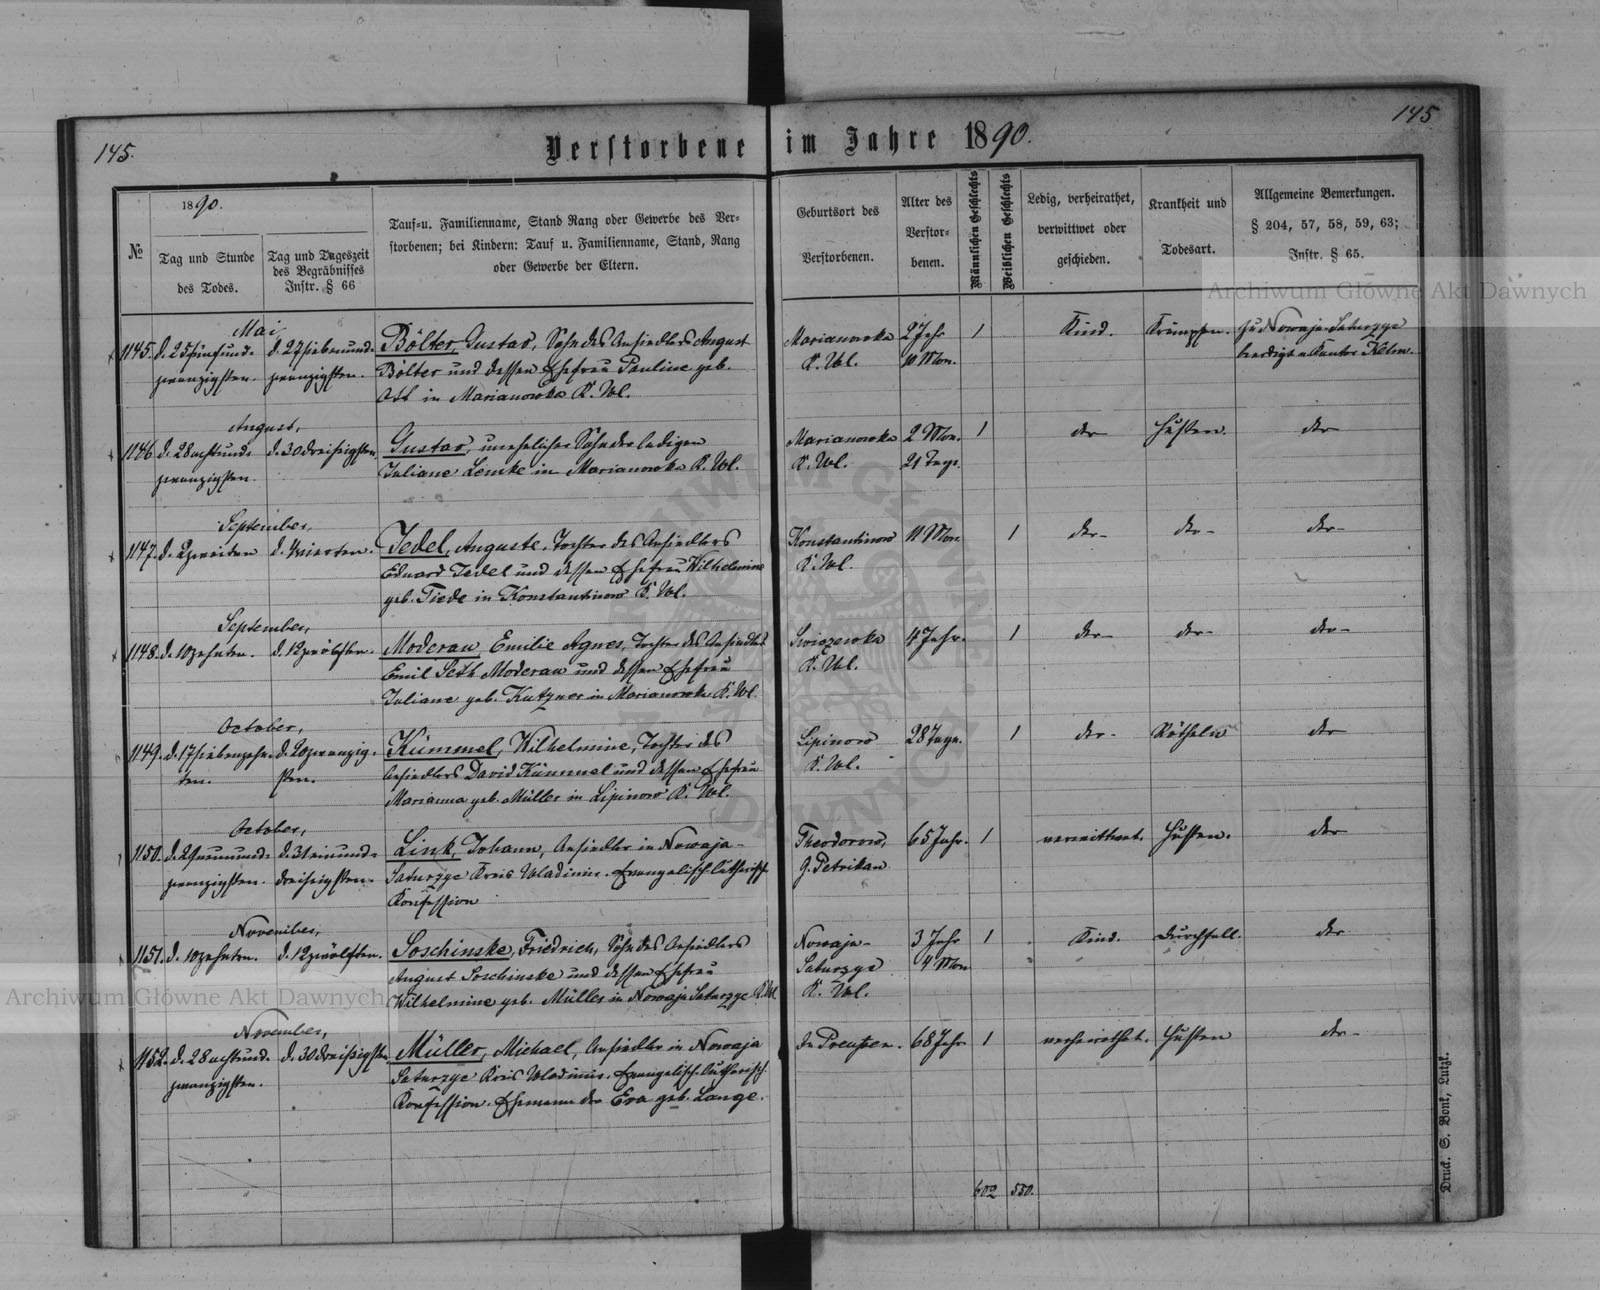 145.
145
Verstorbene im Jahre 1890.
№
1890.
Tag und Stunde
des Todes.
Tag und Tageszeit
des Begräbnisses
Instr. § 66
Tauf=u. Familienname, Stand Rang oder Gewerbe des Ver=
storbenen; bei Kindern: Tauf u. Familienname, Stand, Rang
oder Gewerbe der Eltern.
Geburtsort des
Verstorbenen.
Alter des
Verstor=
benen.
Männlichen Geschlechts
Weiblichen Geschlechts
Ledig, verheirathet,
verwittwet oder
geschieden.
Krankheit und
Todesart.
Allgemeine Bemerkungen.
§ 204, 57, 58, 59, 63;
Instr. § 65.
Mai
1145. d. 25 fünfund- d. 27 siebenund- Bölter, Gustav, Sohn des Ansiedlers August Marianowka 2 Jahr 1 Kind. Krämpfen. Zu Nowaja-Saturzye
zwanzigsten. zwanzigsten. Bölter und dessen Ehefrau Pauline geb. K. Wl. 10 Mon. beerdigt v. Kantor Kelm.
Ott in Marianowka K. Wl.
August,
1146 d. 28 achtund- d. 30 dreißigsten. Gustav, unehelicher Sohn der ledigen Marianowka 2 Mon. 1 der Husten. der
zwanzigsten. Juliane Lemke in Marianowka K. Wl. K. Wl. 21 Tage.
September,
1147. d. 2 zweiten d. 4 vierten. Jedel, Auguste, Tochter des Ansiedlers Konstantinow 11 Mon. 1 der- der- der-
Eduard Jedel und dessen Ehefrau Wilhelmine K. Wl.
geb. Tiede in Konstantinow K. Wl.
September,
1148. d. 10 zehnten. d. 12 zwölften. Moderau, Emilie Agnes, Tochter des Ansiedlers 4 Jahr. 1 der- der- der-
Emil Seth Moderau und dessen Ehefrau K. Wl.
Juliane geb. Kutzner in Marianowka K. Wl.
October,
1149. d. 17 siebenzehn- d. 20 zwanzig- Kümmel, Wilhelmine, Tochter des Lipinow 28 Tage. 1 der- Rötheln der
ten. sten. Ansiedlers David Kümmel und dessen Ehefrau K. Wl.
Marianna geb. Müller in Lipinow K. Wl.
October,
1150. d. 29 neunund- d. 31 einund- Link, Johann, Ansiedler in Nowaja- Theodorow, 65 Jahr. 1 verwittwet. Husten. der
zwanzigsten. dreißigsten. Saturzye Kreis Wladimir. Evangelisch-Lutherisch. G. Petrikau
Konfession
November,
1151. d. 10 zehnten. d. 12 zwölften. Soschinske, Friedrich, Sohn des Ansiedlers Nowaja- 3 Jahr 1 Kind. Durchfall. der
August Soschinske und dessen Ehefrau Saturzye 4 Mon
Wilhelmine geb. Müller in Nowaja Saturzye K. Wl K. Wl.
November,
1152. d. 28 achtund- d. 30 dreißigsten Müller, Michael, Ansiedler in Nowaja In Preußen. 68 Jahr 1 verheirathet. Husten der-
zwanzigsten. Saturzye Kreis Wladimir. Evangelisch-Lutherisch.
Konfession. Ehemann der Eva geb. Lange.
602 550.
Druck. S. Bonk, Lutzk.
Archiwum Główne Akt Dawnych
Archiwum Główne Akt Dawnych
ARCHIWUM GŁÓWNE AKT DAWNYCH